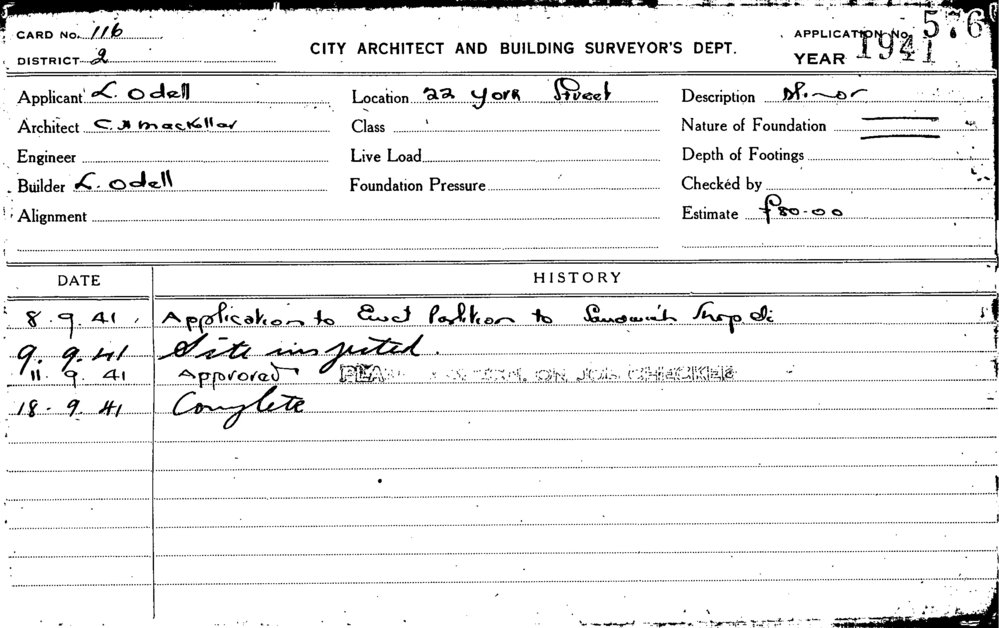 CARD No. 116
APPLICATION No. 576
DISTRICT 2
CITY ARCHITECT AND BUILDING SURVEYOR'S DEPT.
YEAR 1941
Applicant L. Odell
Location 22 York Street
Description Minor
Architect C A Mackellar
Class
Nature of Foundation
Engineer
Live Load
Depth of Footings
Builder L. Odell
Foundation Pressure
Checked by
Alignment
Estimate £80-0-0
DATE
HISTORY
8.9.41. Application to Erect Partition to Sandwich Shop
9.9.41 Site inspected.
11.9.41 Approved ON JOB CHECKED
18.9.41 Complete